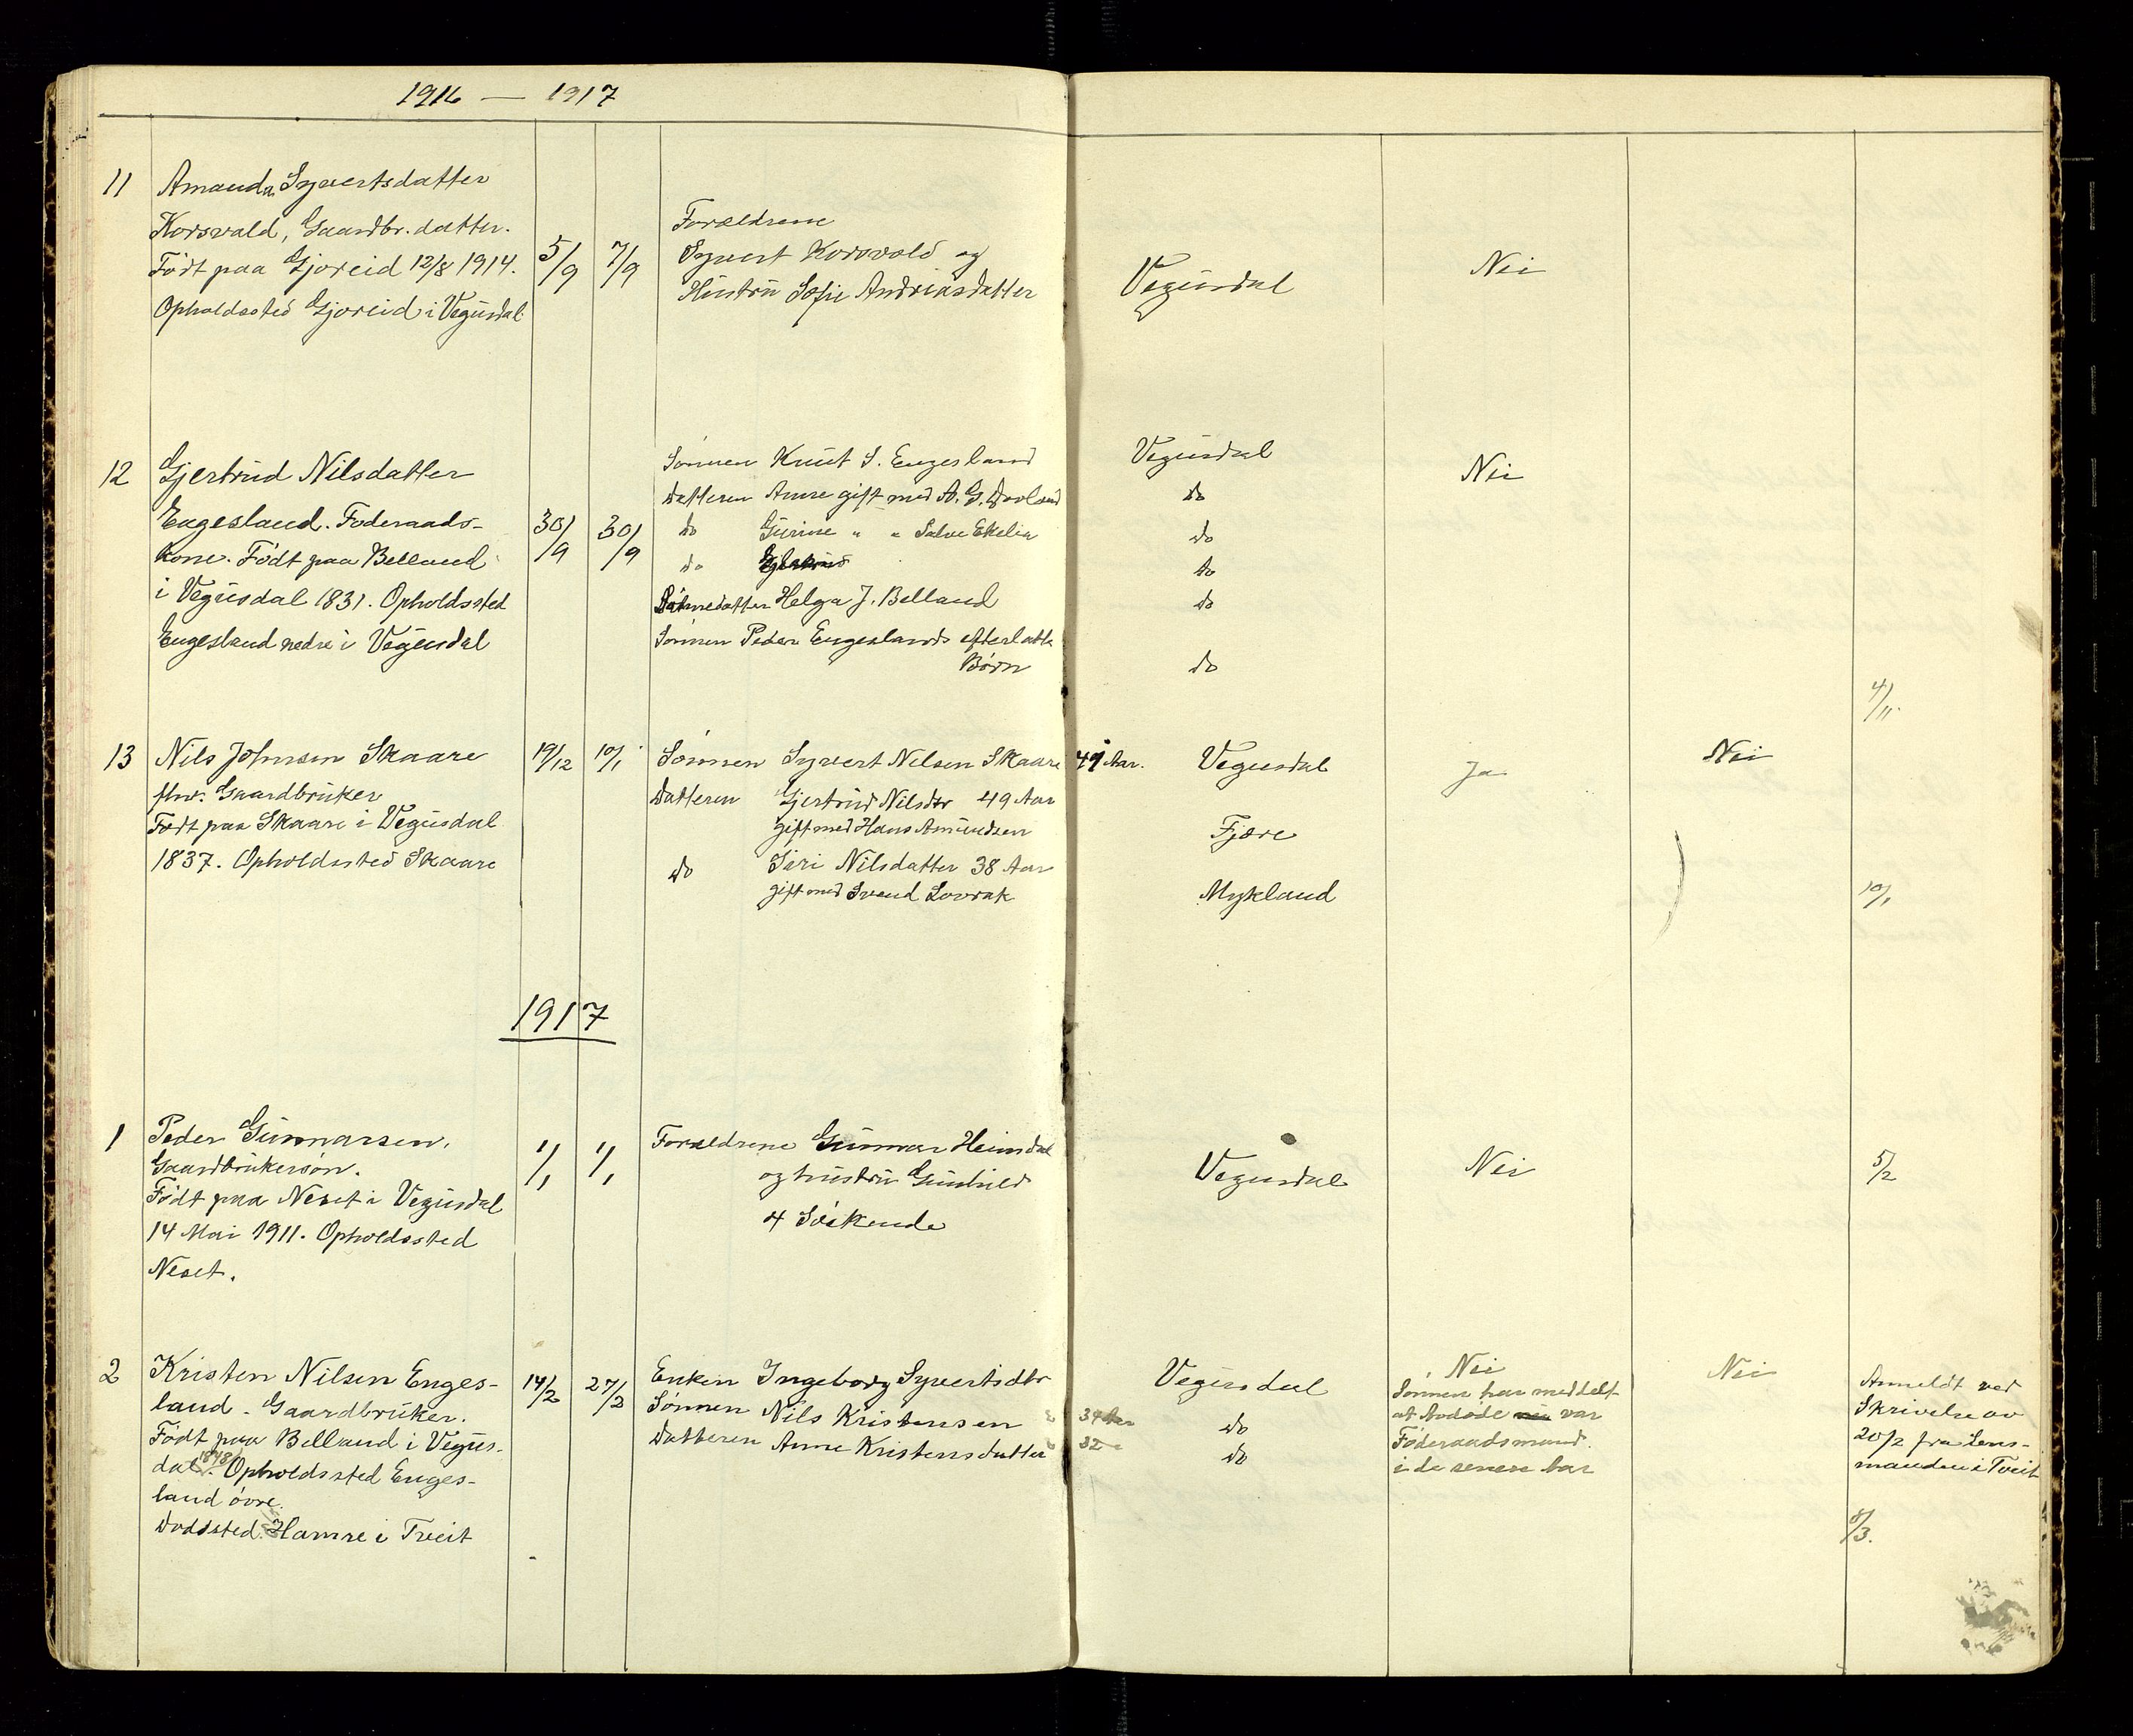 1916 — 1917
11 Amanda Syvertsdatter
Korsvald, Gaardbr. datter.
Født paa Gjoreid 12/8 1914.
Opholdssted Gjoreid i Vegusdal
5/9 7/9
Forældrene
Syvert Korsvald og
Hustru Sofie Andreasdatter
Vegusdal
Nei
12 Gjertrud Nilsdatter
Engesland. Foderaads-
kone. Født paa Belland
i Vegusdal 1831. Opholdssted
Engesland nedre i Vegusdal
30/9 30/9
Sønnen Knut S. Engesland Vegusdal
Datteren Anne gift med A. G. Dovland do
do Gurine " " Salve Ekelia do
do do
Datterdatter Helga J. Belland do
Sønnen Peder Engeslands efterlatte
Børn do
Nei
4/11.
13 Nils Johnsen Skaare
fhv. Gaardbruker
Født paa Skaare i Vegusdal
1837. Opholdssted Skaare
19/12 10/1
Sønnen Syvert Nilsen Skaare 47 Aar. Vegusdal
Datteren Gjertrud Nilsdtr 49 Aar
gift med Hans Amundsen Fjære
do Siri Nilsdatter 38 Aar
gift med Svend Lovrak Mykland
Ja
Nei
10/1
1917
1 Peder Gunnarsen,
Gaardbrukersøn.
Født paa Neset i Vegusdal
14 Mai 1911. Opholdssted
Neset.
1/1 1/1
Forældrene Gunnar Heimdal
og hustru Gunhild
4 Søskende
Vegusdal
Nei
5/2
2 Kristen Nilsen Enges-
land - Gaardbruker.
Født paa Belland i Vegus-
dal 1848. Opholdssted Enges-
land øvre.
Dødssted Hamre i Tveit
14/2 27/2
Enken Ingeborg Syvertsdtr Vegusdal
Sønnen Nils Kristensen 34 Aar do
Datteren Anne Kristensdatter 32 " do
Nei
Sønnen har meddelt
at Avdøde var
Føderaadsmand.
i de senere Aar
Nei
Anmeldt ved
Skrivelse av
20/2 fra Lens-
manden i Tveit
8/3.